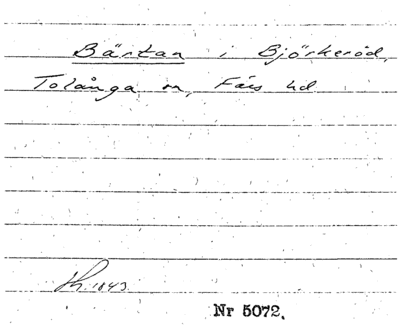 Bärtan i Björkeröd,
Tolånga sn, Färs hd
Th. 1843.
Nr 5072.